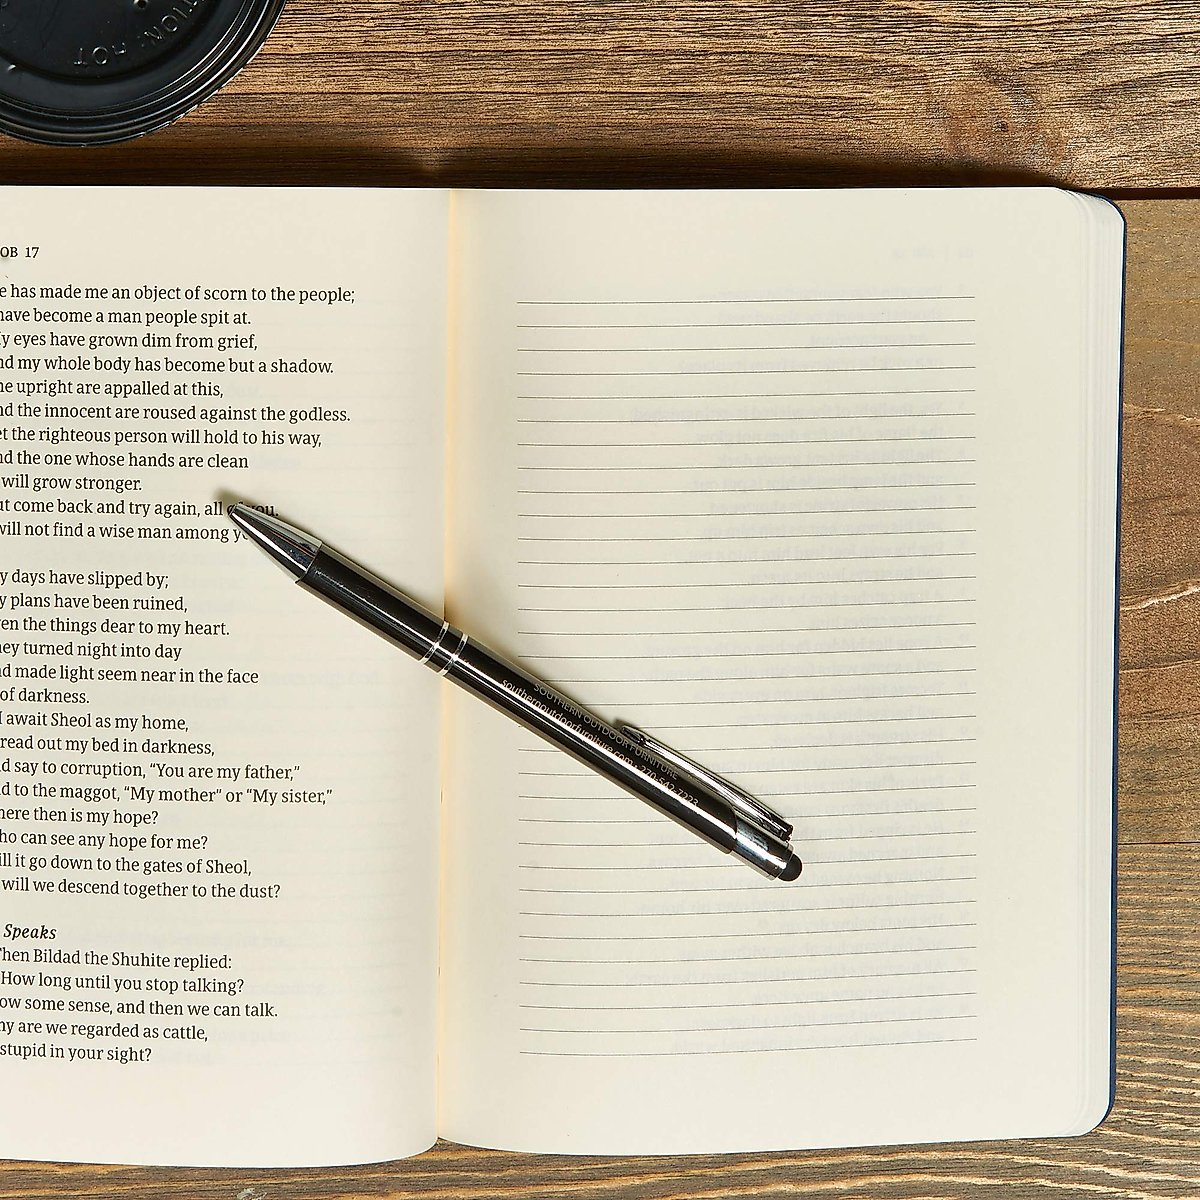 TION HOT
OB 17
e has made me an object of scorn to the people;
have become a man people spit at.
y eyes have grown dim from grief,
nd my whole body has become but a shadow.
he upright are appalled at this,
nd the innocent are roused against the godless.
et the righteous person will hold to his way,
nd the one whose hands are clean
will grow stronger.
ut come back and try again, all of you.
will not find a wise man among yo
y days have slipped by;
y plans have been ruined,
ven the things dear to my heart.
hey turned night into day
nd made light seem near in the face
of darkness.
I await Sheol as my home,
read out my bed in darkness,
d say to corruption, “You are my father,”
d to the maggot, “My mother” or “My sister,”
here then is my hope?
ho can see any hope for me?
ill it go down to the gates of Sheol,
will we descend together to the dust?
Speaks
Then Bildad the Shuhite replied:
How long until you stop talking?
ow some sense, and then we can talk.
hy are we regarded as cattle,
stupid in your sight?
SOUTHERN OUTDOOR FURNITURE
southernoutdoorfurniture.com • 270-542-7223